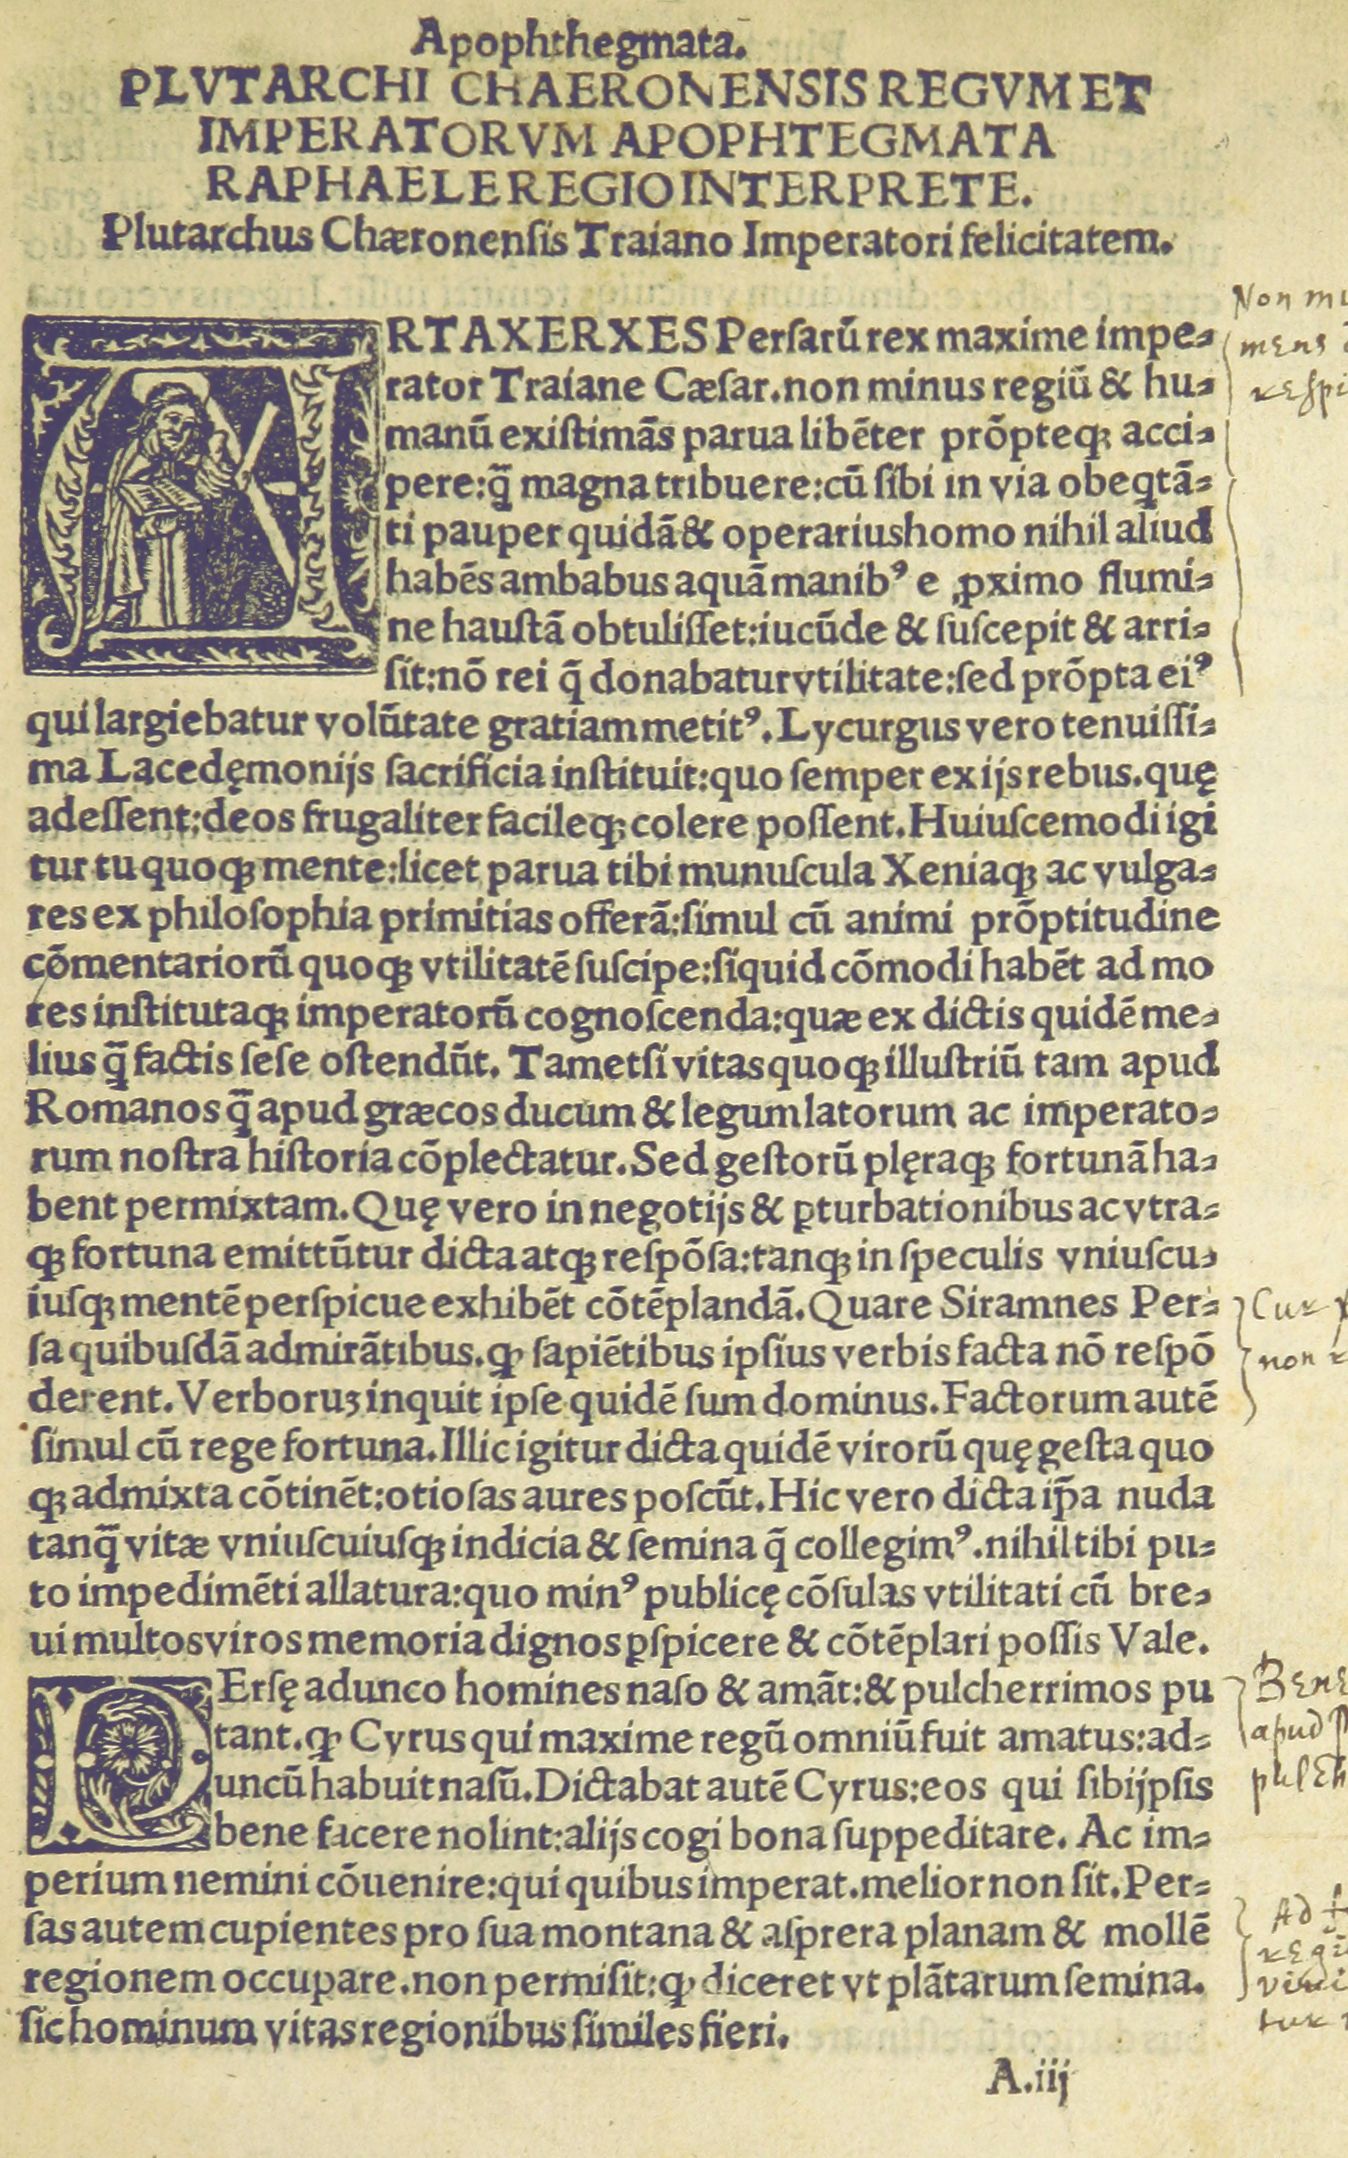 Apophthegmata.
PLVTARCHI CHAERONENSIS REGVM ET
IMPERATORVM APOPHTEGMATA
RAPHAELE REGIO INTERPRETE.
Plutarchus Chæronenſis Traiano Imperatori felicitatem.
ARTAXERXES Perſarū rex maxime impe-
rator Traiane Cæſar. non minus regiū & hu-
manū exiſtimās parua libēter prōpteꝗ; acci-
pere: q̄ magna tribuere: cū ſibi in via obeqtā-
ti pauper quidā & operarius homo nihil aliud
habēs ambabus aquā manibꝰ e ꝓximo flumi-
ne hauſtā obtuliſſet: iucūde & ſuſcepit & arri-
ſit: nō rei q̄ donabatur vtilitate: ſed prōpta eiꝰ
qui largiebatur volūtate gratiam metitꝰ. Lycurgus vero tenuiſſi-
ma Lacedęmonijs ſacrificia inſtituit: quo ſemper ex ijs rebus. quę
adeſſent: deos frugaliter facileꝗ; colere poſſent. Huiuſcemodi igi
tur tu quoꝗ; mente: licet parua tibi munuſcula Xeniaꝗ; ac vulga-
res ex philoſophia primitias offerā: ſimul cū animi prōptitudine
cōmentariorū quoꝗ; vtilitatē ſuſcipe: ſiquid cōmodi habēt ad mo
res inſtitutaꝗ; imperatorū cognoſcenda: quæ ex dictis quidē me-
lius q̄ factis ſeſe oſtendūt. Tametſi vitas quoꝗ; illuſtriū tam apud
Romanos q̄ apud græcos ducum & legumlatorum ac imperato-
rum noſtra hiſtoria cōplectatur. Sed geſtorū plęraꝗ; fortunā ha-
bent permixtam. Quę vero in negotijs & ꝑturbationibus ac vtra-
ꝗ; fortuna emittūtur dicta atꝗ; reſpōſa: tanꝗ; in ſpeculis vniuſcu-
iuſꝗ; mentē perſpicue exhibēt cōtēplandā. Quare Siramnes Per-
ſa quibuſdā admirātibus. ꝙ ſapiētibus ipſius verbis facta nō reſpō
derent. Verboruꝫ inquit ipſe quidē ſum dominus. Factorum autē
ſimul cū rege fortuna. Illic igitur dicta quidē virorū quę geſta quo
ꝗ; admixta cōtinēt: otioſas aures poſcūt. Hic vero dicta ip̄a nuda
tanq̄ vitæ vniuſcuiuſꝗ; indicia & ſemina q̄ collegimꝰ. nihil tibi pu-
to impedimēti allatura: quo minꝰ publicę cōſulas vtilitati cū bre-
ui multos viros memoria dignos ꝑſpicere & cōtēplari poſſis Vale.
PErſę adunco homines naſo & amāt: & pulcherrimos pu
tant. ꝙ Cyrus qui maxime regū omniū fuit amatus: ad-
uncū habuit naſū. Dictabat autē Cyrus: eos qui ſibijpſis
bene facere nolint: alijs cogi bona ſuppeditare. Ac im-
perium nemini cōuenire: qui quibus imperat. melior non ſit. Per-
ſas autem cupientes pro ſua montana & aſprera planam & mollē
regionem occupare. non permiſit: ꝙ diceret vt plātarum ſemina.
ſic hominum vitas regionibus ſimiles fieri.
A.iij
Non
mens
Cur
non
apud
Ad